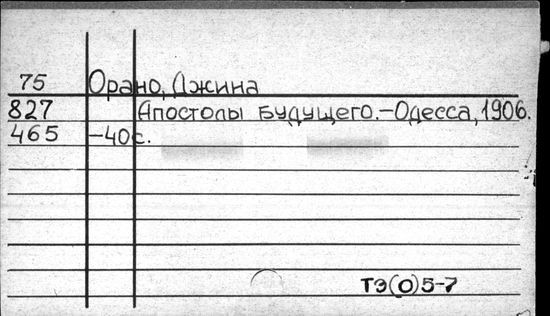 75 Орано, Джина
827 Апостолы будущего.—Одесса, 1906.
465 —40с.
ТЭ(О)5-7